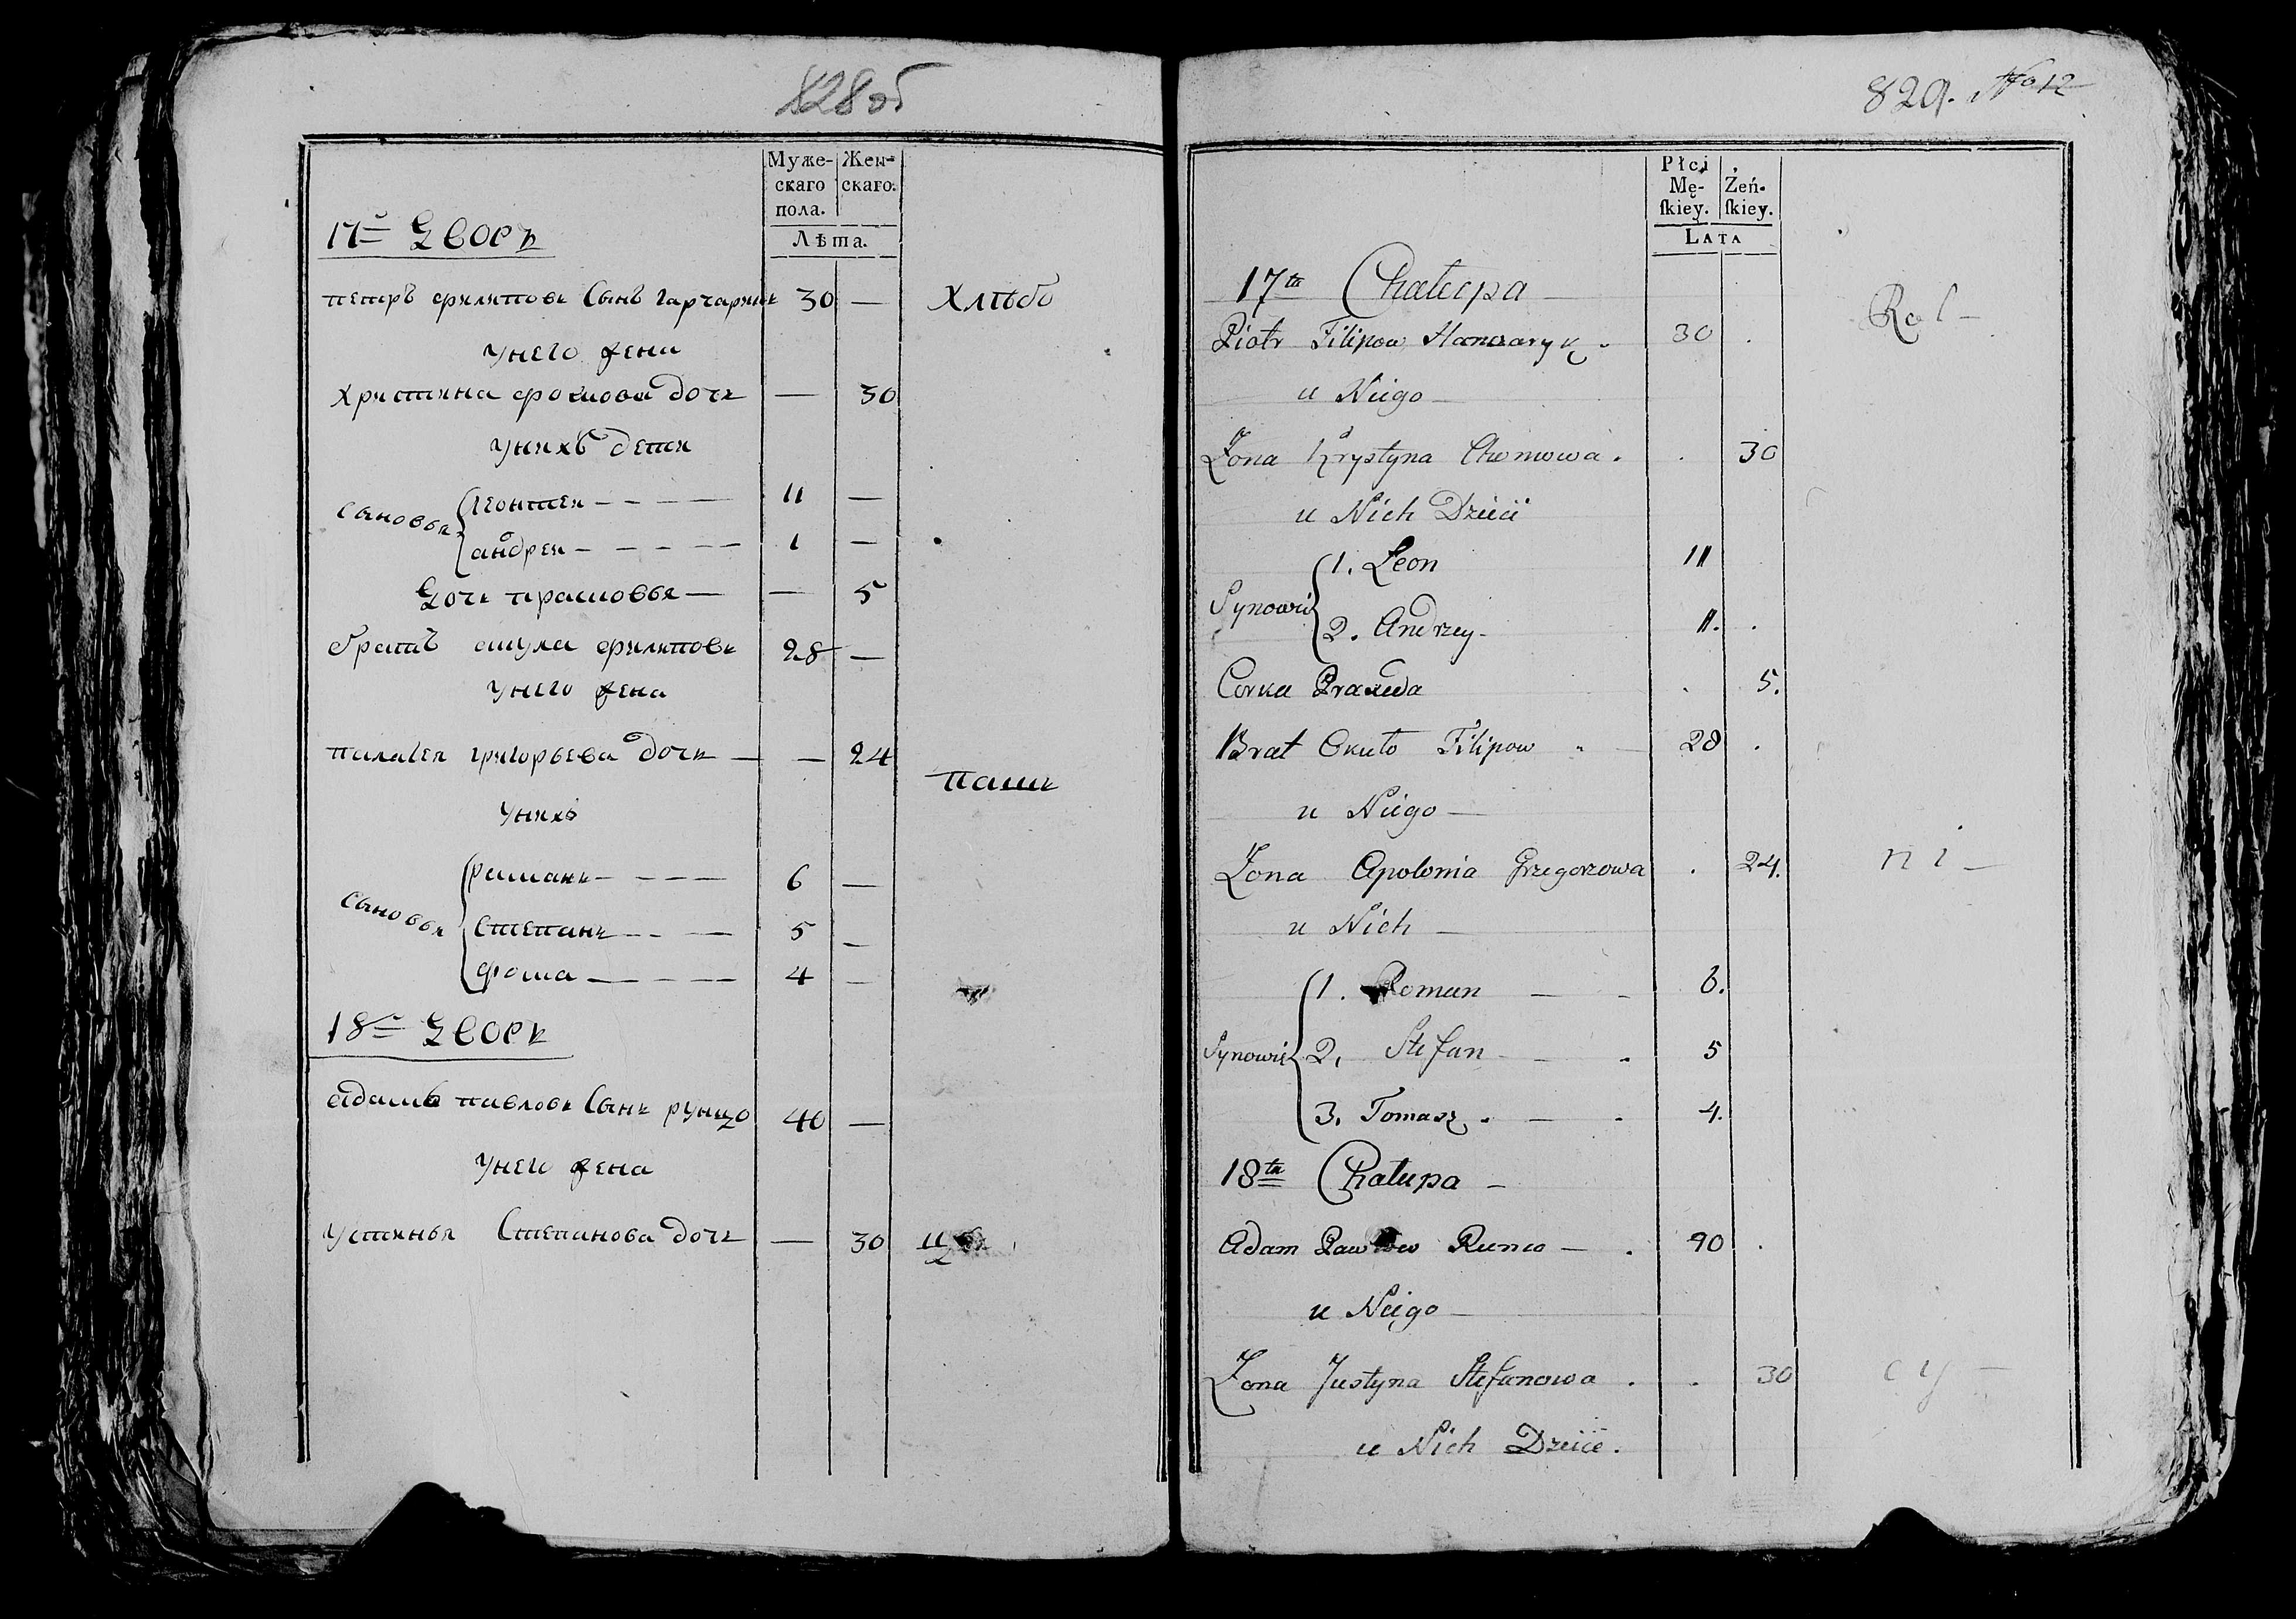 828об
Муже-
скаго
пола.
Жен-
скаго.
Лѣта.
17й Дворъ
петръ филиповъ Сынъ гарчарикъ 30 — Хлѣбо
унего жена
Христина фомова дочь — 30
унихъ дети
Сыновья
леонтеи — — — — 11 —
андреи — — — — 1 —
Дочь прасковья — — 5
братъ акула филиповъ 28 —
унего жена
палагея григорьева дочь — — 24
паш
унихъ
Сыновья
раманъ — — — — 6 —
Степанъ — — — 5 —
фома — — — — 4 —
18й Дворъ
адамъ павловъ Сынъ рунцо 40 —
унего жена
устинья Степанова дочь — 30
829. No 12
Płci
Mę-
ſkiey.
Żeń-
ſkiey.
LATA
17ta Chałupa —
Piotr Filipow Hanczaryk . 30 . Rol —
u Niego —
Zona Krystyna Chomowa . . 30
u Nich Dzieci
Synowie
1. Leon 11
2. Andrzey — 11. .
Corka Praxeda . 5.
Brat Okuło Filipow 28 .
u Niego —
Zona Apolonia Grzegorzowa . 24. ni —
u Nich —
Synowie
1. Roman — — 6.
2. Stefan — — . 5
3. Tomasz . — . 4.
18ta Chałupa —
Adam Pawłow Runco — . 90 .
u Niego —
Zona Justyna Stefanowa . . 30 cy —
u Nich Dzieci .